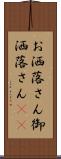 お洒落さん御
洒落さん((